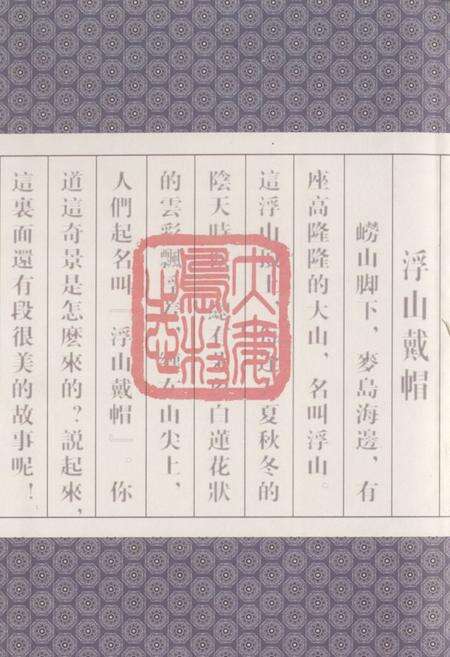 浮山戴帽
嶗山脚下，麥島海邊，有
座高隆隆的大山，名叫浮山。
這浮山 夏秋冬的
陰天時 白蓮花狀
的雲彩飄 山尖上，
人們起名叫『浮山戴帽』。你
道這奇景是怎麽來的？説起來，
這裏面還有段很美的故事呢！
大麥
島村